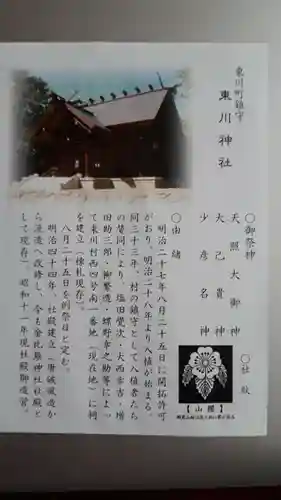 東川町鎮守
東川神社
〇御祭神
天照大御神
大己貴神
少彦名神
〇社紋
【山櫻】
〇由緒
明治二十七年八月二十五日に開拓許可
がおり、明治二十八年より入植が始まる。
同三十三年、村の鎮守として入植者たち
の賛同により、塩田覺次・大西幸吉・増
田助三郎・柳繁造・螺野幸之助等によっ
て東川村西四号南一番地（現在地）に祠
を建立（棟札現存）。
八月二十五日を例祭日と定む。
明治四十四年、社殿建立（唐破風造か
ら流造へ改修し、今も金比羅神社社殿と
して現存）。昭和十一年現社殿御造営。